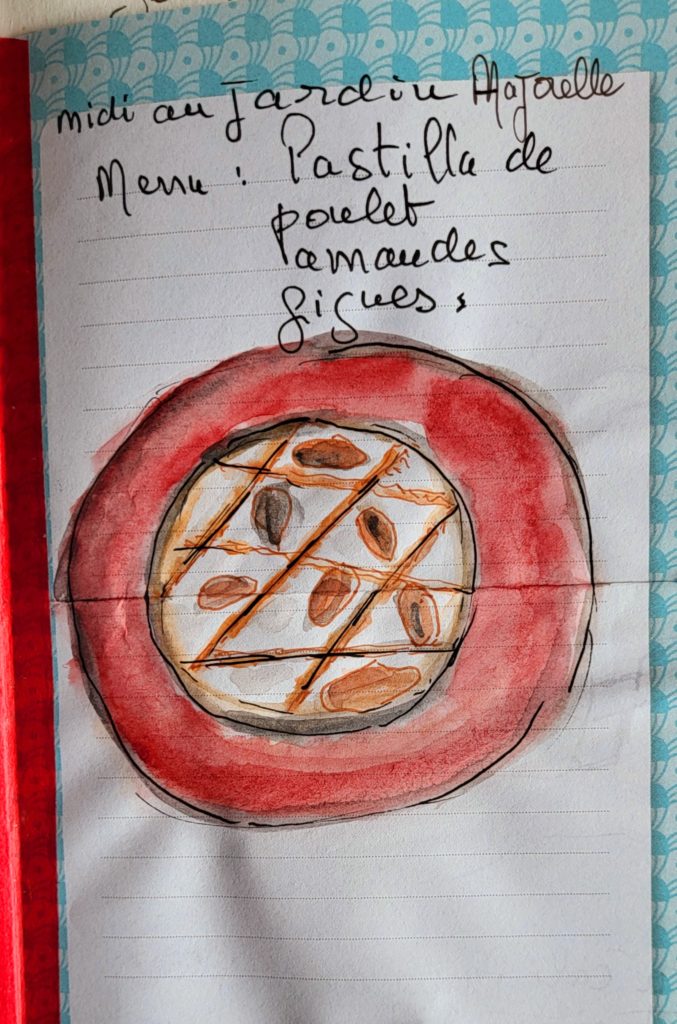 midi au Jardin Majorelle
Menu : Pastilla de
poulet
amandes
figues.